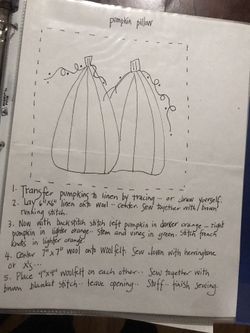 pumpkin pillow
1. Transfer pumpkins to linen by tracing -- or draw yourself.
2. Lay 6"x6" linen onto wool -- center. Sew together with brown
running stitch.
3. Now with backstitch stitch left pumpkin in darker orange -- right
pumpkin in lighter orange -- stem and vines in green. Stitch french
knots in lighter orange.
4. Center 7"x7" wool onto woolfelt. Sew down with herringbone
or Xs --
5. Place woolfelt on each other -- Sew together with
brown blanket stitch -- leave opening -- Stuff -- finish sewing.